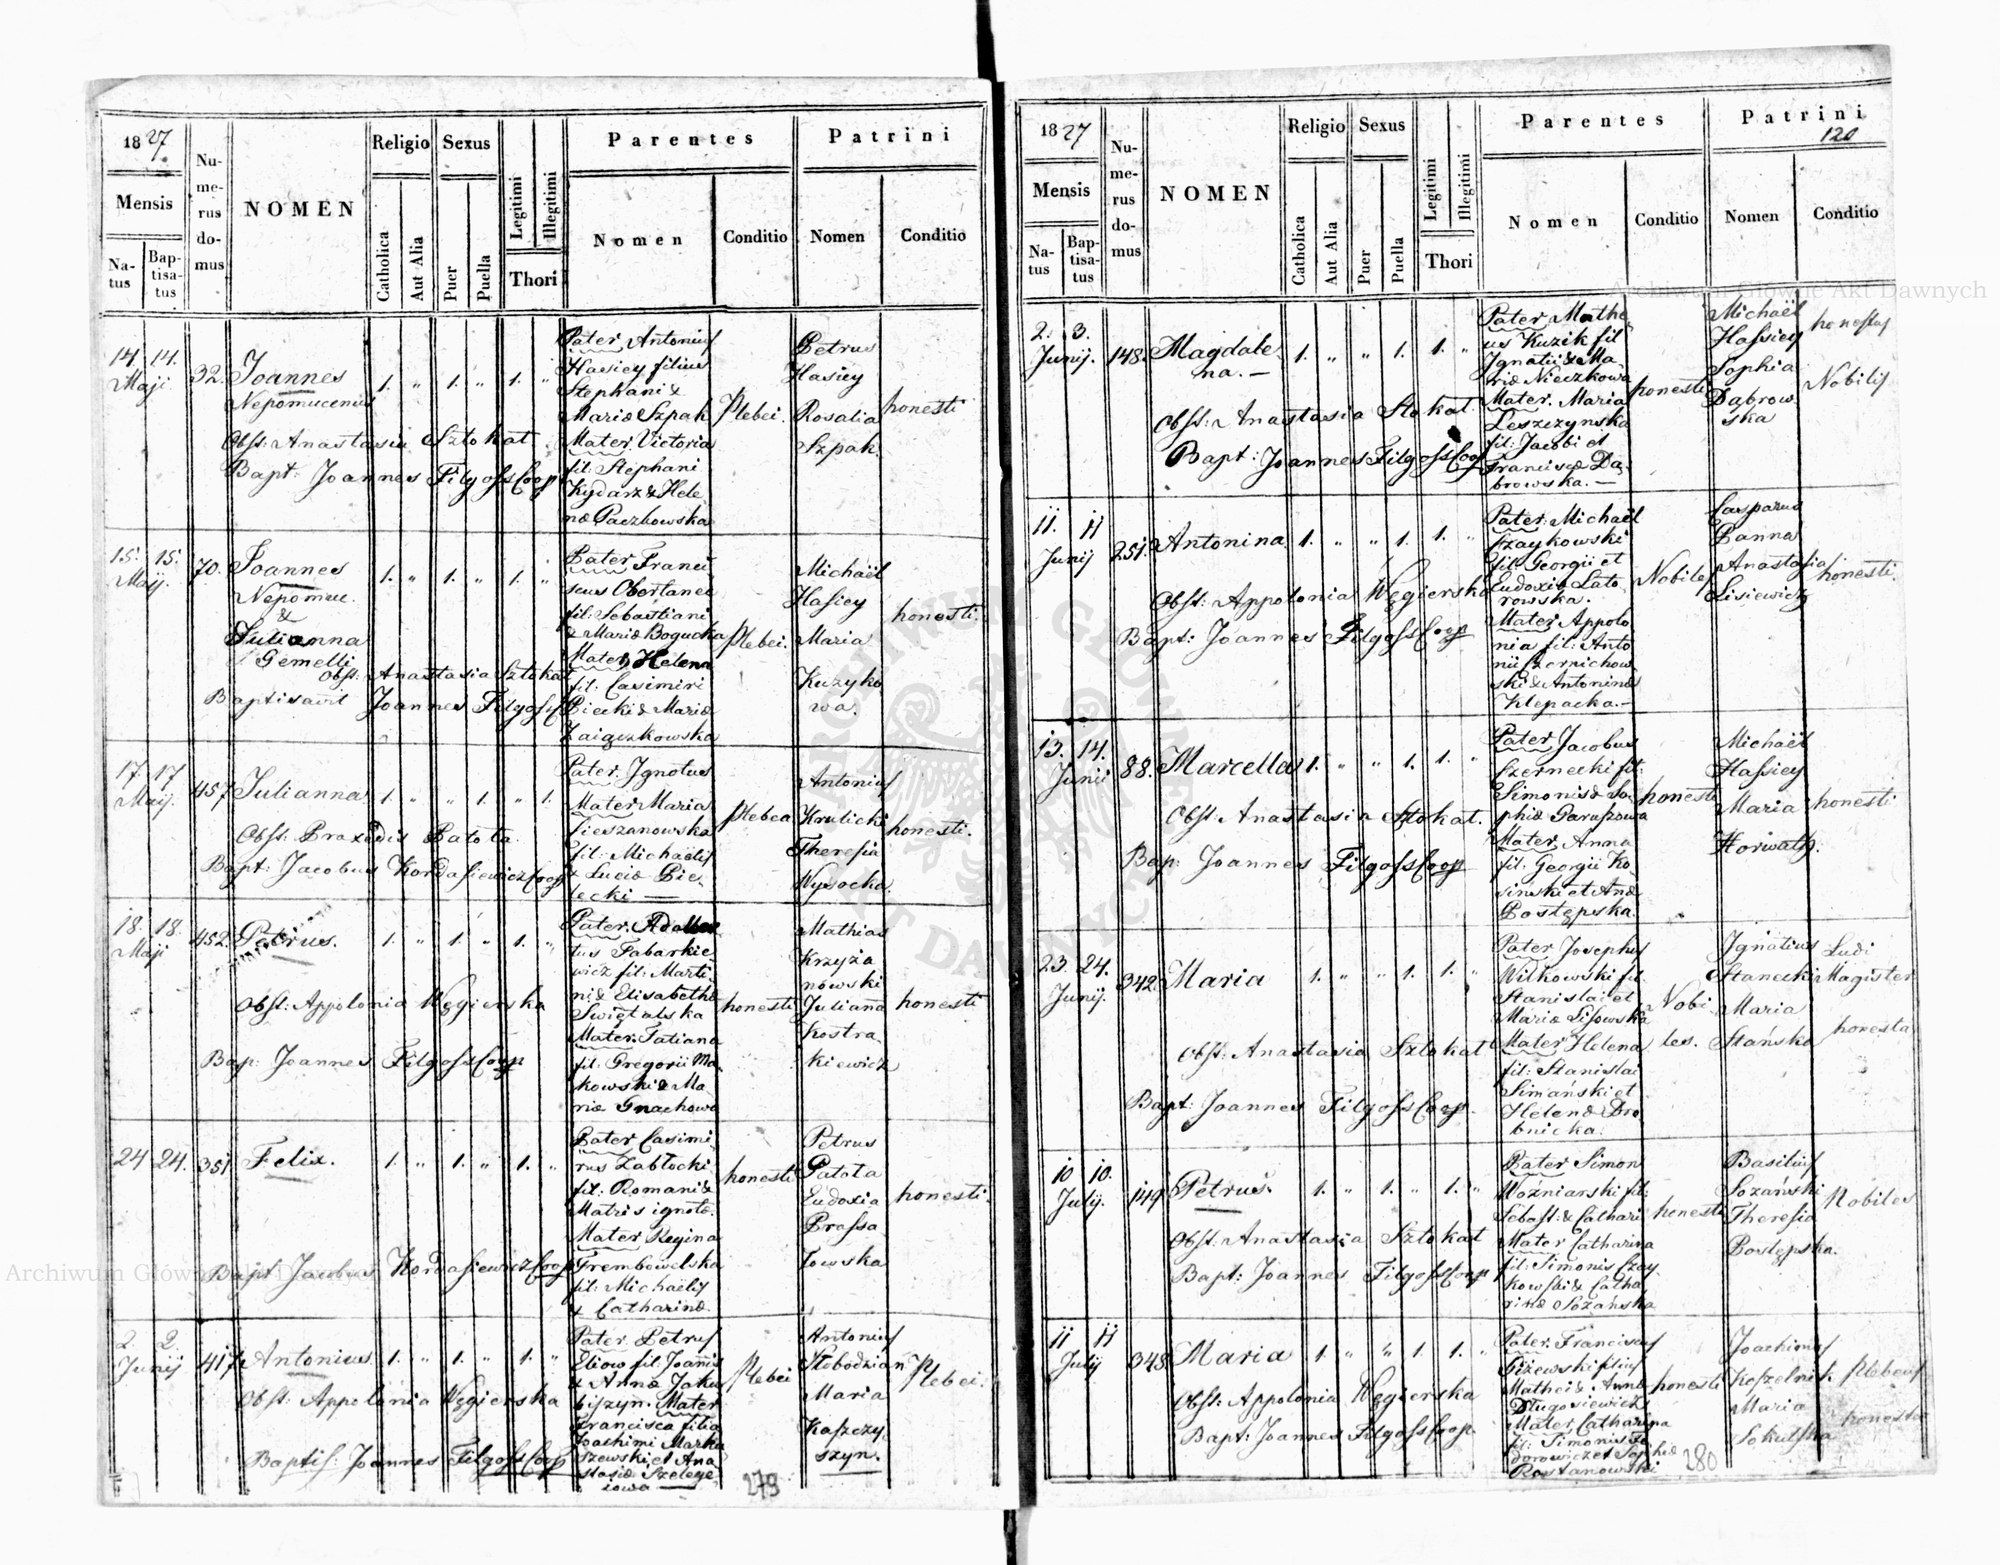 1827
Numerus domus
NOMEN
Religio
Sexus
Legitimi
Illegitimi
Thori
Parentes
Patrini
Mensis
Natus
Baptisatus
Catholica
Aut Alia
Puer
Puella
Nomen
Conditio
Nomen
Conditio
14. 14.
Maji
32.
Joannes
Nepomucenus
1. " 1. " 1. "
Obst: Anastasia Sztokat
Bapt: Joannes Filgoss Coop
Pater Antonius
Hasiey filius
Stephani &
Mariæ Szpak
Mater Victoria
fil: Stephani
Kydarz & Hele
næ Paczkowska
Plebei.
Petrus
Hasiey
Rosalia
Szpak
honesti
15. 15.
Maji.
70.
Joannes
Nepomuc.
&
Julianna
Gemelli
1. " 1. " 1. "
Obst: Anastasia Sztokat
Baptisavit Joannes Filgoss
Pater Franci
scus Obertaniec
fil: Sebastiani
& Mariæ Bogucka
Mater Helena
fil: Casimiri
Piecki & Mariæ
Zaigczkowska
Plebei.
Michaël
Hasiey
Maria
Kuzyko
wa.
honesti.
17 17
Maij.
457
Julianna
1. " " 1. " 1.
Obst: Praxedis Patota
Bapt: Jacobus Kordasiewicz Coop
Pater Ignotus
Mater Maria
Cieszanowska
fil: Michaëlis
& Luciæ Bie
lecki —
Plebea
Antonius
Krulicki
Theresia
Wysocka
honesti.
18. 18.
Maji
452.
Petrus.
1. " 1. " 1. "
Obst: Appolonia Węgierska
Bap: Joannes Filgoss Coop
Pater
tus Fabarkie
wicz fil: Marti
ni & Elisabethæ
Mater Tatiana
fil: Gregorii Ma
kowski & Ma
riæ Gnachowa
honesti
Mathias
Krzyża
nowski
Julianna
Kostra
kiewicz
honesti
24 24.
351
Felix.
1. " 1. " 1. "
Bapt: Jacobus Kordasiewicz Coop
Pater Casimi
rus Zabłocki
fil: Romani &
Matris ignotæ.
Mater Regina
Trembowelska
fil: Michaëlis
& Catharinæ
honesti
Petrus
Patota
Eudoxia
Brassa
towska
honesti.
2 2.
Junij
417
Antonius
1. " 1. " 1. "
Obst: Appolonia Węgierska
Baptis: Joannes Filgoss Coop
Pater Petrus
Eliow fil: Joannis
& Annæ Jaku
biszyn. Mater
Francisca filia
Joachimi Marka
szewski et Ana
stasiæ Szelege
iowa —
Plebei
Antonius
Słobodzian
Maria
Kaszczy
szyn.
Plebei.
279
1827
Numerus domus
NOMEN
Religio
Sexus
Legitimi
Illegitimi
Thori
Parentes
Patrini
120
Mensis
Natus
Baptisatus
Catholica
Aut Alia
Puer
Puella
Nomen
Conditio
Nomen
Conditio
2. 3.
Junij.
148.
Magdale
na. —
1. " " 1. 1. "
Obst: Anastasia Stokat.
Bapt: Joannes Filgoss Coop
Pater Mathe
us Kuzik fil
Ignatii & Ma
riæ Nieczkowa
Mater. Maria
Leszczynska
fil: Jacobi et
Franciscæ Da
browska. —
honesti
Michaël
Hassiey
Sophia
Dąbrow
ska
honestus
Nobilis
11. 11
Junij
251.
Antonina
1. " " 1. 1. "
Obst: Appolonia Węgierska
Bapt: Joannes Filgoss Coop
Pater: Michaël
Czaykowski
fil: Georgii et
Eudoxiæ Lato
rowska.
Mater Appolo
nia fil: Anto
nii Czernichow
ski & Antoninæ
Klepacka. —
Nobiles
Casparus
Panna
Anastasia
Lisiewicz
honesti.
13. 14.
Junii
88.
Marcella
1. " " 1. 1. "
Obst: Anastasia Stokat.
Bap: Joannes Filgoss Coop
Pater Jacobus
Czernecki fil:
Simonis & So
phiæ Parussowa
Mater. Anna
fil: Georgii Ko
sinski et Annæ
Postępska.
honesti
Michaël
Hassiey
Maria
Horwath.
honesti
23. 24.
Junij.
342
Maria
1. " " 1. 1. "
Obst: Anastasia Sztokat
Bapt: Joannes Filgoss Coop.
Pater Josephus
Witkowski fil
Stanislai et
Mariæ Lisowska
Mater Helena
fil: Stanislai
Simański et
Helenæ Dro
bnicka.
Nobi
les.
Ignatius
Stanecki
Maria
Stańska
Ludi
Magister
honesta
10 10.
Julij.
149
Petrus.
1. " 1. " 1. "
Obst: Anastasia Sztokat
Bapt: Joannes Filgoss Coop
Pater Simon
Wozniarski fil:
Sebast: & Cathari
Mater Catharina
fil: Simonis Czay
kowski & Catha
rinæ Sozańska
honesti
Basilius
Sozański
Theresia
Postępska.
Nobiles
11 11
Julij
348
Maria
1. " " 1 1. "
Obst: Appolonia Węgierska
Bapt: Joannes Filgoss Coop.
Pater. Franciscus
Giżewski filius
Mathei & Annæ
Długosiewicz
Mater Catharina
fil: Simonis To
dorowicz et Sophiæ
Rostanowski
honesti
Joachimus
Koszelnik
Maria
Sokulska
Plebeus
honesta
280
Archiwum Główne Akt Dawnych
Archiwum Główne Akt Dawnych
ARCHIWUM GŁÓWNE AKT DAWNYCH